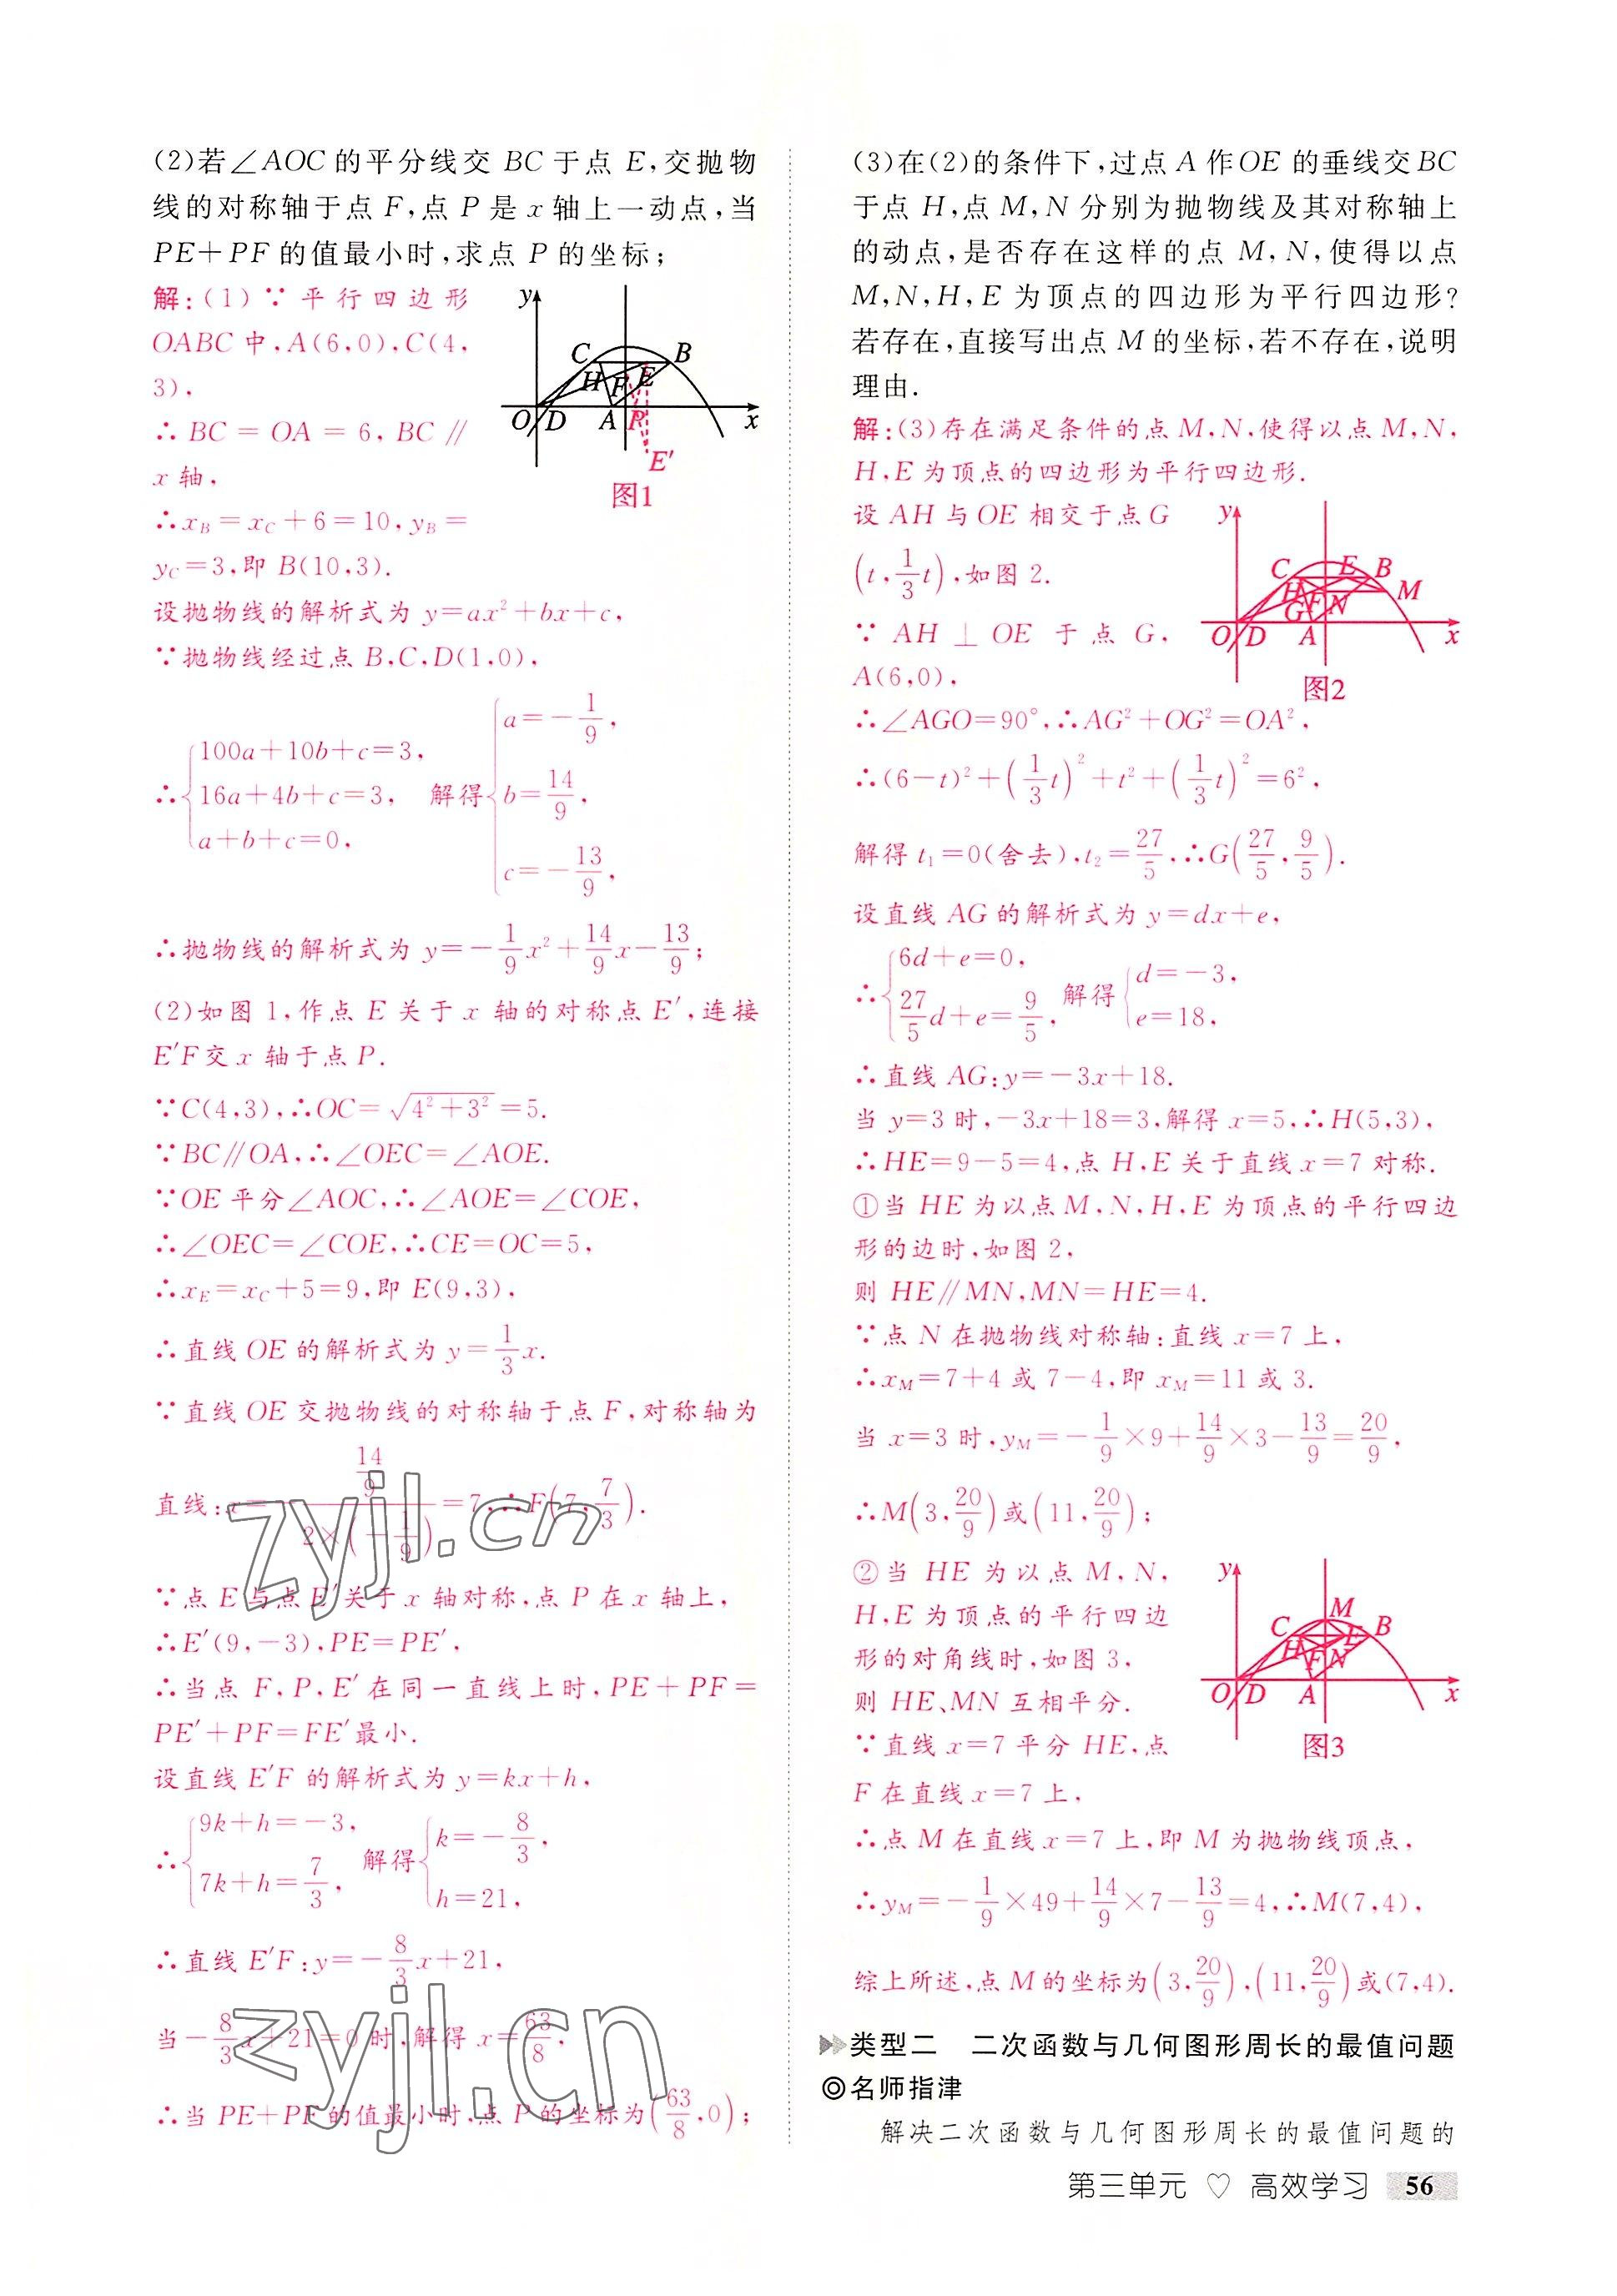 (2)若∠AOC的平分线交 BC于点 E,交抛物
线的对称轴于点 F,点 P 是 x 轴上一动点,当
PE+PF 的值最小时,求点 P 的坐标;
解:(1)∵平行四边形
OABC中,A(6,0),C(4,
3),
∴ BC = OA = 6, BC∥
x 轴,
∴x_B=x_C+6=10,y_B=
y_C=3,即 B(10,3).
y
C
B
H
F
E
O
D
A
P
x
E′
图1
设抛物线的解析式为 y=ax²+bx+c,
∵抛物线经过点 B,C,D(1,0),
∴{100a+10b+c=3, 16a+4b+c=3, a+b+c=0, 解得{a=-1/9, b=14/9, c=-13/9,
∴抛物线的解析式为 y=-1/9x²+14/9x-13/9;
(2)如图 1,作点 E 关于 x 轴的对称点 E′,连接
E′F交 x 轴于点 P.
∵C(4,3),∴OC=√(4²+3²)=5.
∵BC∥OA,∴∠OEC=∠AOE.
∵OE 平分∠AOC,∴∠AOE=∠COE,
∴∠OEC=∠COE,∴CE=OC=5,
∴x_E=x_C+5=9,即 E(9,3),
∴直线 OE 的解析式为 y=1/3x.
∵直线 OE 交抛物线的对称轴于点 F,对称轴为
直线:x=-(14/9)/(2×(-1/9))=7,∴F(7,7/3).
∵点 E 与点 E′关于 x 轴对称,点 P 在 x 轴上,
∴E′(9,-3),PE=PE′,
∴当点 F,P,E′在同一直线上时,PE+PF=
PE′+PF=FE′最小.
设直线 E′F 的解析式为 y=kx+h,
∴{9k+h=-3, 7k+h=7/3, 解得{k=-8/3, h=21,
∴直线 E′F:y=-8/3x+21,
当-8/3x+21=0 时,解得 x=63/8,
∴当 PE+PF 的值最小时,点 P 的坐标为(63/8,0);
zyjl.cn
zyjl.cn
(3)在(2)的条件下,过点 A 作OE 的垂线交BC
于点 H,点 M,N 分别为抛物线及其对称轴上
的动点,是否存在这样的点 M,N,使得以点
M,N,H,E 为顶点的四边形为平行四边形?
若存在,直接写出点 M 的坐标,若不存在,说明
理由.
解:(3)存在满足条件的点 M,N,使得以点 M,N,
H,E 为顶点的四边形为平行四边形.
设 AH 与 OE 相交于点 G
(t,1/3t),如图 2.
∵ AH ⊥ OE 于点 G,
A(6,0),
y
C
E
B
H
F
N
M
G
O
D
A
x
图2
∴∠AGO=90°,∴AG²+OG²=OA²,
∴(6-t)²+(1/3t)²+t²+(1/3t)²=6²,
解得 t₁=0(舍去),t₂=27/5,∴G(27/5,9/5).
设直线 AG 的解析式为 y=dx+e,
∴{6d+e=0, 27/5d+e=9/5, 解得{d=-3, e=18,
∴直线 AG:y=-3x+18.
当 y=3 时,-3x+18=3,解得 x=5,∴H(5,3),
∴HE=9-5=4,点 H,E关于直线 x=7 对称.
①当 HE 为以点 M,N,H,E 为顶点的平行四边
形的边时,如图 2,
则 HE∥MN,MN=HE=4.
∵点 N 在抛物线对称轴:直线 x=7 上,
∴x_M=7+4 或 7-4,即 x_M=11 或 3.
当 x=3 时,y_M=-1/9×9+14/9×3-13/9=20/9,
∴M(3,20/9)或(11,20/9);
②当 HE 为以点 M,N,
H,E 为顶点的平行四边
形的对角线时,如图 3,
则 HE、MN 互相平分.
∵直线 x=7 平分 HE,点
F 在直线 x=7 上,
y
M
C
E
B
H
F
N
O
D
A
x
图3
∴点 M 在直线 x=7 上,即 M 为抛物线顶点,
∴y_M=-1/9×49+14/9×7-13/9=4,∴M(7,4),
综上所述,点 M 的坐标为(3,20/9),(11,20/9)或(7,4).
类型二 二次函数与几何图形周长的最值问题
◎名师指津
解决二次函数与几何图形周长的最值问题的
第三单元 ♡ 高效学习 56